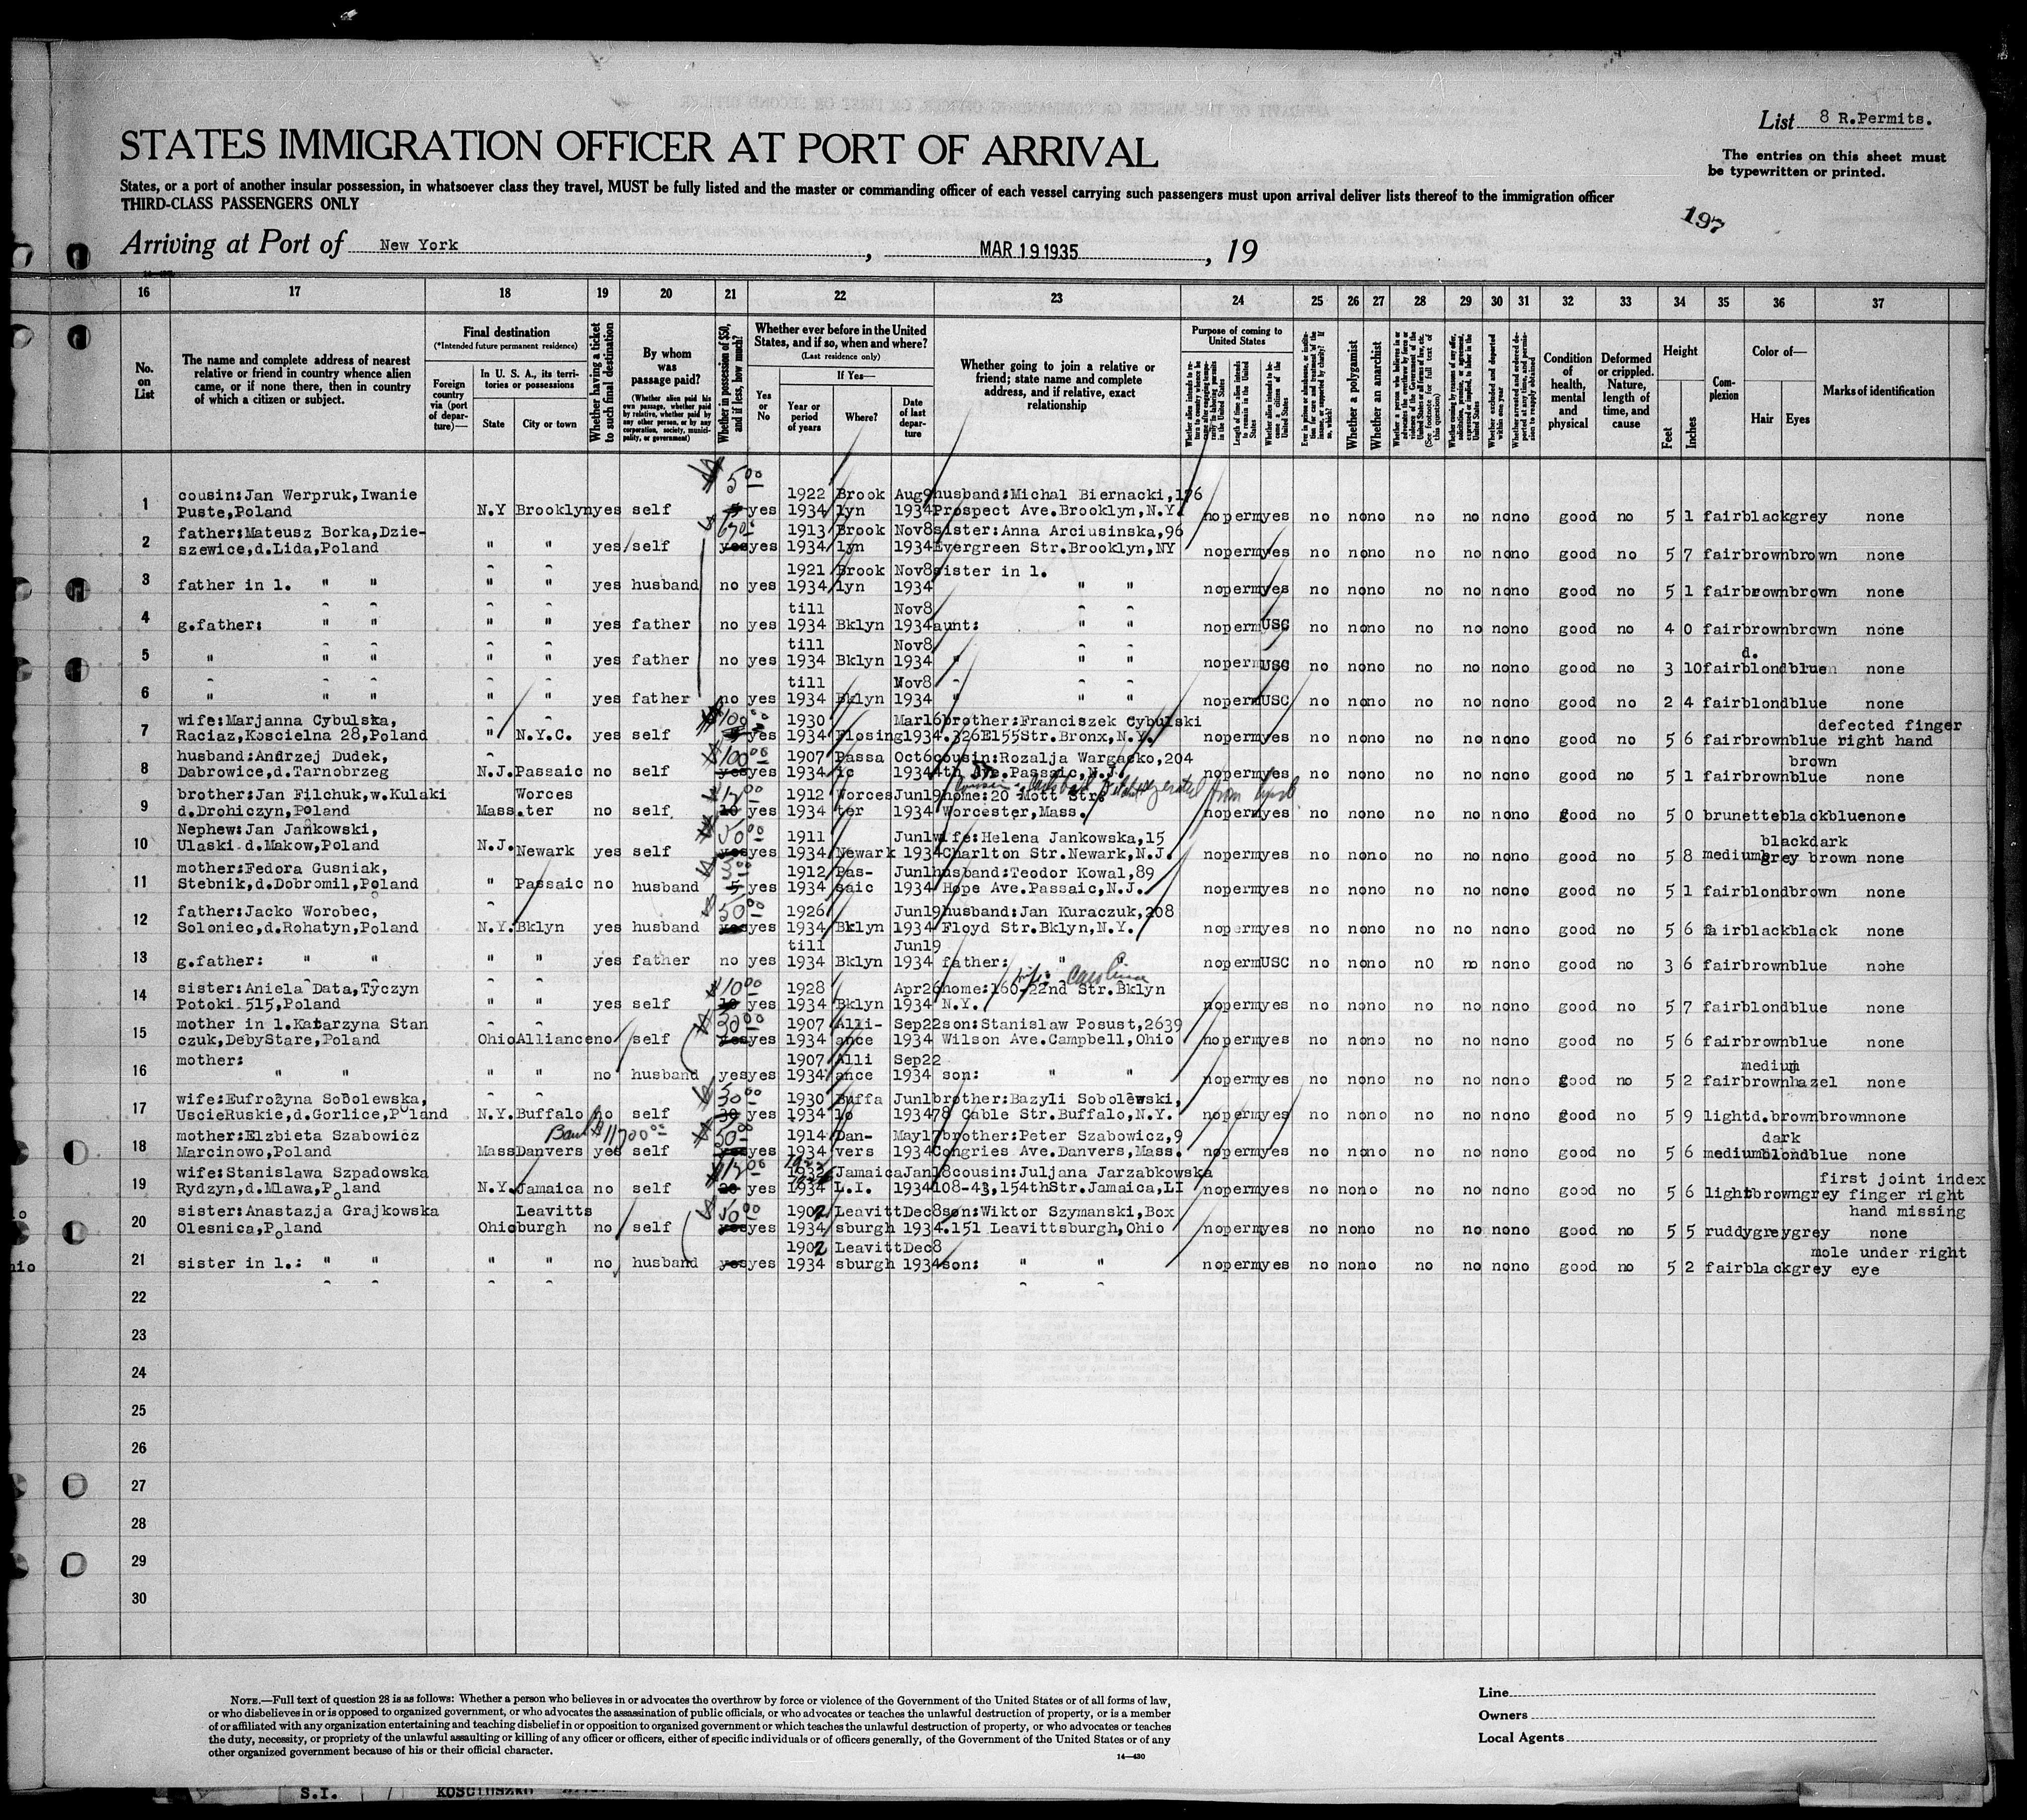 List 8 R.Permits.
STATES IMMIGRATION OFFICER AT PORT OF ARRIVAL
The entries on this sheet must
be typewritten or printed.
States, or a port of another insular possession, in whatsoever class they travel, MUST be fully listed and the master or commanding officer of each vessel carrying such passengers must upon arrival deliver lists thereof to the immigration officer
THIRD-CLASS PASSENGERS ONLY
197
Arriving at Port of New York, MAR 19 1935, 19
16 17 18 19 20 21 22 23 24 25 26 27 28 29 30 31 32 33 34 35 36 37
No. on List
The name and complete address of nearest
relative or friend in country whence alien
came, or if none there, then in country
of which a citizen or subject.
Final destination
(*Intended future permanent residence)
Foreign country via (port of departure)—
In U. S. A., its territories or possessions
State
City or town
Whether having a ticket to such final destination
By whom was passage paid?
(Whether alien paid his own passage, whether paid by relative, whether paid by any other person, or by any corporation, society, municipality, or government)
Whether in possession of $50, and if less, how much?
Whether ever before in the United States, and if so, when and where?
(Last residence only)
Yes or No
If Yes—
Year or period of years
Where?
Date of last departure
Whether going to join a relative or
friend; state name and complete
address, and if relative, exact
relationship
Purpose of coming to United States
Length of time alien intends to remain in the United States
Whether alien intends to become a citizen of the United States
Whether a polygamist
Whether an anarchist
Whether excluded and deported within one year
Condition of health, mental and physical
Deformed or crippled. Nature, length of time, and cause
Height
Feet
Inches
Complexion
Color of—
Hair
Eyes
Marks of identification
1 cousin:Jan Werpruk,Iwanie 5 00 1922 Brook Aug9 husband:Michal Biernacki,176
Puste,Poland N.Y Brooklyn yes self yes 1934 lyn 1934 Prospect Ave.Brooklyn,N.Y. no perm yes no no no no no no no good no 5 1 fair black grey none
2 father:Mateusz Borka,Dzie- 1913 Brook Nov8 sister:Anna Arciusinska,96
szewice,d.Lida,Poland " " yes self yes yes 1934 lyn 1934 Evergreen Str.Brooklyn,NY no perm yes no no no no no no no good no 5 7 fair brown brown none
3 1921 Brook Nov8 sister in l.
father in l. " " " " yes husband no yes 1934 lyn 1934 " " no perm yes no no no no no no no good no 5 1 fair brown brown none
4 till Nov8
g.father: " " " " yes father no yes 1934 Bklyn 1934 aunt: " " no perm USC no no no no no no no good no 4 0 fair brown brown none
5 till Nov8 d.
" " " " " yes father no yes 1934 Bklyn 1934 " " " no perm USC no no no no no no no good no 3 10 fair blond blue none
6 till Nov8
" " " " " yes father no yes 1934 Bklyn 1934 " " " no perm USC no no no no no no no good no 2 4 fair blond blue none
7 wife:Marjanna Cybulska, $100 00 1930 Mar16 brother:Franciszek Cybulski defected finger
Raciaz,Koscielna 28,Poland " N.Y.C. yes self yes 1934 Flosing 1934.326E155Str.Bronx,N.Y. no perm yes no no no no no no no good no 5 6 fair brown blue right hand
8 husband:Andrzej Dudek, $100 00 1907 Passa Oct6 cousin:Rozalja Wargacko,204 brown
Dabrowice,d.Tarnobrzeg N.J. Passaic no self yes yes 1934 ic 1934 4th Ave.Passaic,N.J. no perm yes no no no no no no no good no 5 1 fair brown blue none
9 brother:Jan Filchuk,w.Kulaki Worces 1912 Worces Jun19 home:20 Mott Str.
d.Drohiczyn,Poland Mass. ter no self yes 1934 ter 1934 Worcester,Mass. no perm yes no no no no no no no good no 5 0 brunette black blue none
10 Nephew:Jan Jankowski, 50 00 1911 Jun1 wife:Helena Jankowska,15 black dark
Ulaski d.Makow,Poland N.J. Newark yes self yes yes 1934 Newark 1934 Charlton Str.Newark,N.J. no perm yes no no no no no no no good no 5 8 medium grey brown none
11 mother:Fedora Gusniak, 1912 Pas- Jun1 husband:Teodor Kowal,89
Stebnik,d.Dobromil,Poland " Passaic no husband 5 yes 1934 saic 1934 Hope Ave.Passaic,N.J. no perm yes no no no no no no no good no 5 1 fair blond brown none
12 father:Jacko Worobec, 50 00 1926 Jun19 husband:Jan Kuraczuk,208
Soloniec,d.Rohatyn,Poland N.Y. Bklyn yes husband yes yes 1934 Bklyn 1934 Floyd Str.Bklyn,N.Y. no perm yes no no no no no no no good no 5 6 fair black black none
13 till Jun19
g.father: " " " " yes father no yes 1934 Bklyn 1934 father: " " no perm USC no no no no no no no good no 3 6 fair brown blue nohe
wife: Carolina
14 sister:Aniela Data,Tyczyn $10 00 1928 Apr26 home:160-22nd Str.Bklyn
Potoki 515,Poland " " yes self 10 yes 1934 Bklyn 1934 N.Y. no perm yes no no no no no no no good no 5 7 fair blond blue none
15 mother in l.Katarzyna Stan 30 00 1907 Alli- Sep22 son:Stanislaw Posust,2639
czuk,DebyStare,Poland Ohio Alliance no self yes yes 1934 ance 1934 Wilson Ave.Campbell,Ohio no perm yes no no no no no no no good no 5 6 fair brown blue none
16 mother: 1907 Alli Sep22 medium
" " " " no husband yes yes 1934 ance 1934 son: " " no perm yes no no no no no no no good no 5 2 fair brown hazel none
17 wife:Eufrozyna Sobolewska, 30 00 1930 Buffa Jun1 brother:Bazyli Sobolewski,
UscieRuskie,d.Gorlice,Poland N.Y. Buffalo no self 30 yes 1934 lo 1934 78 Cable Str.Buffalo,N.Y. no perm yes no no no no no no no good no 5 9 light d.brown brown none
18 mother:Elzbieta Szabowicz 50 00 1914 Dan- May17 brother:Peter Szabowicz,9 dark
Marcinowo,Poland Mass Danvers yes self yes 1934 vers 1934 Congries Ave.Danvers,Mass. no perm yes no no no no no no no good no 5 6 medium blond blue none
19 wife:Stanislawa Szpadowska 1932 Jamaica Jan18 cousin:Juljana Jarzabkowska first joint index
Rydzyn,d.Mlawa,Poland N.Y. Jamaica no self 20 yes 1934 L.I. 1934 108-43,154thStr.Jamaica,LI no perm yes no no no no no no no good no 5 6 light brown grey finger right
hand missing
20 sister:Anastazja Grajkowska Leavitts 50 00 1902 Leavitt Dec8 son:Wiktor Szymanski,Box
Olesnica,Poland Ohio burgh no self yes yes 1934 sburgh 1934.151 Leavittsburgh,Ohio no perm yes no no no no no no no good no 5 5 ruddy grey grey none
21 1902 Leavitt Dec8 mole under right
sister in l.: " " " " no husband yes yes 1934 sburgh 1934 son: " " no perm yes no no no no no no no good no 5 2 fair black grey eye
22
23
24
25
26
27
28
29
30
NOTE.—Full text of question 28 is as follows: Whether a person who believes in or advocates the overthrow by force or violence of the Government of the United States or of all forms of law,
or who disbelieves in or is opposed to organized government, or who advocates the assassination of public officials, or who advocates or teaches the unlawful destruction of property, or is a member
of or affiliated with any organization entertaining and teaching disbelief in or opposition to organized government or which teaches the unlawful destruction of property, or who advocates or teaches
the duty, necessity, or propriety of the unlawful assaulting or killing of any officer or officers, either of specific individuals or of officers generally, of the Government of the United States or of any
other organized government because of his or their official character.
14—430
Line
Owners
Local Agents
S.I. KOSCIUSZKO